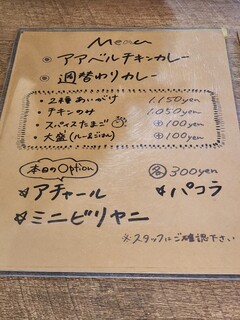 Menu
アアベルチキンカレー
週替わりカレー
・2種あいがけ 1.150yen
・チキンのみ 1.050yen
・スパイスたまご ⊕100yen
・大盛(ルー&ごはん) ⊕100yen
本日のOption 各300yen
☆アチャール ☆パコラ
☆ミニビリヤニ
※スタッフにご確認下さい